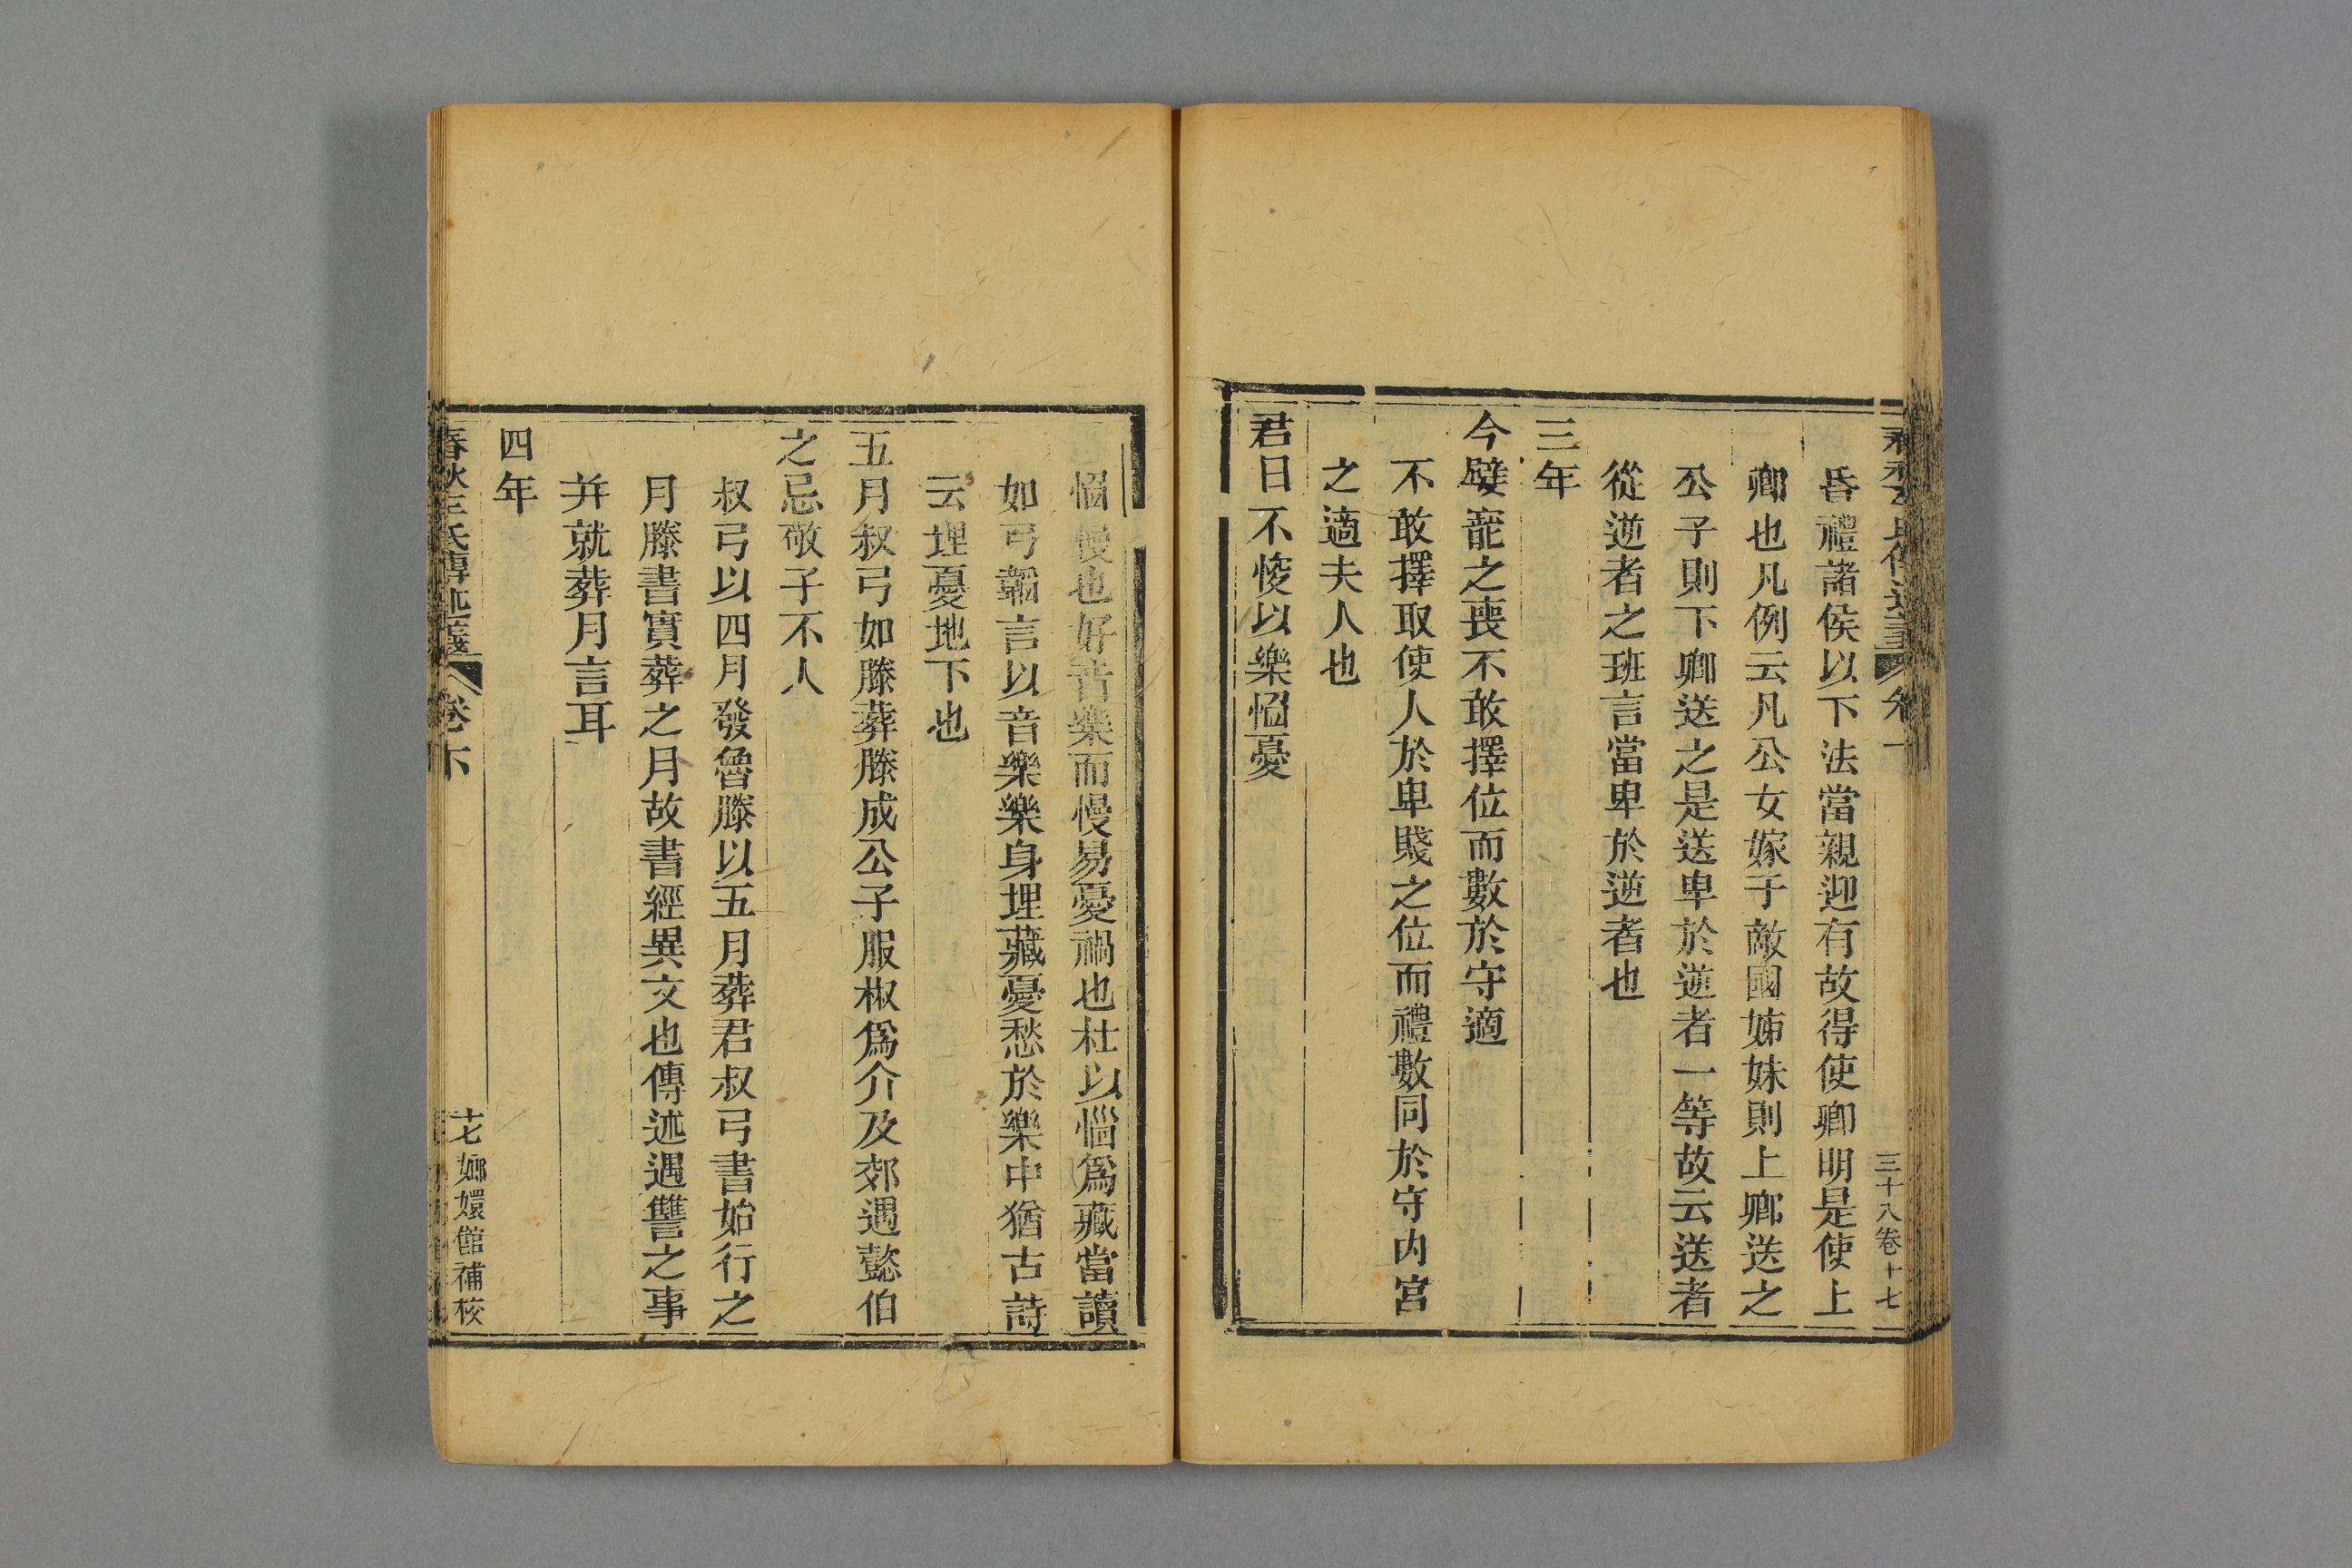 三十八卷十七
昏禮諸侯以下法當親迎有故得使卿明是使上
卿也凡例云凡公女嫁于敵國姊妹則上卿送之
公子則下卿送之是送卑於逆者一等故云送者
從逆者之班言當卑於逆者也
三年
今嬖寵之喪不敢擇位而數於守適
不敢擇取使人於卑賤之位而禮數同於守內宮
之適夫人也
君日不悛以樂慆憂
慆慢也好音樂而慢易憂禍也杜以慆爲藏當讀
如弓韜言以音樂樂身埋藏憂愁於樂中猶古詩
云埋憂地下也
五月叔弓如滕葬滕成公子服椒爲介及郊遇懿伯
之忌敬子不入
叔弓以四月發魯滕以五月葬君叔弓書始行之
月滕書實葬之月故書經異文也傳述遇讐之事
幷就葬月言耳
四年
春秋左氏傳述義 卷下
十七 嫏嬛館補校